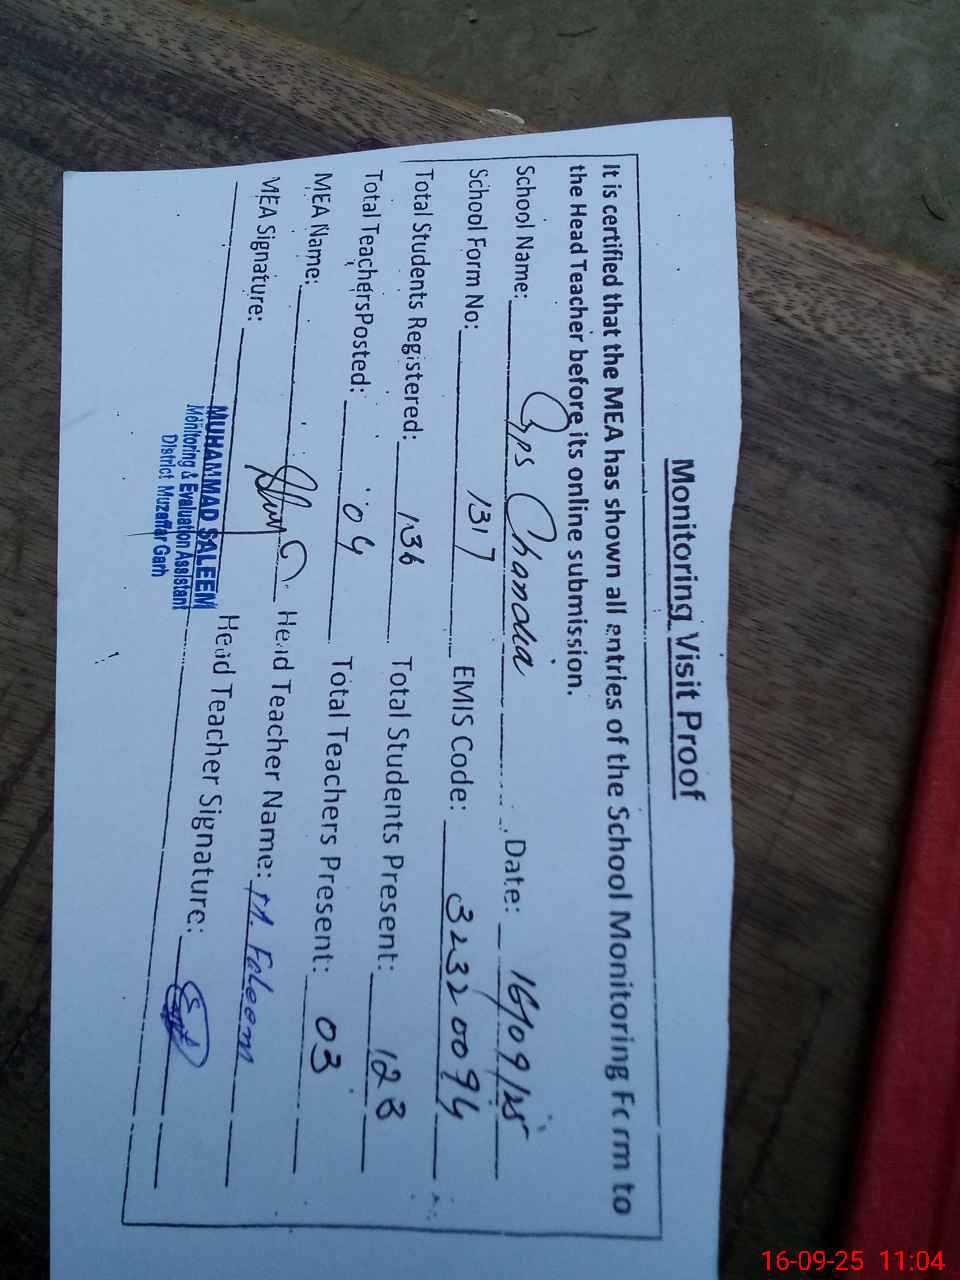 Monitoring Visit Proof
It is certified that the MEA has shown all entries of the School Monitoring Form to
the Head Teacher before its online submission.
School Name: Gps Chandia Date: 16/09/25
School Form No: 1317 EMIS Code: 32320094
Total Students Registered: 136 Total Students Present: 123
Total TeachersPosted: 04 Total Teachers Present: 03
MEA Name: Head Teacher Name: M. Faleem
MEA Signature: Head Teacher Signature:
MUHAMMAD SALEEM
Monitoring & Evaluation Assistant
District Muzaffar Garh
16-09-25 11:04